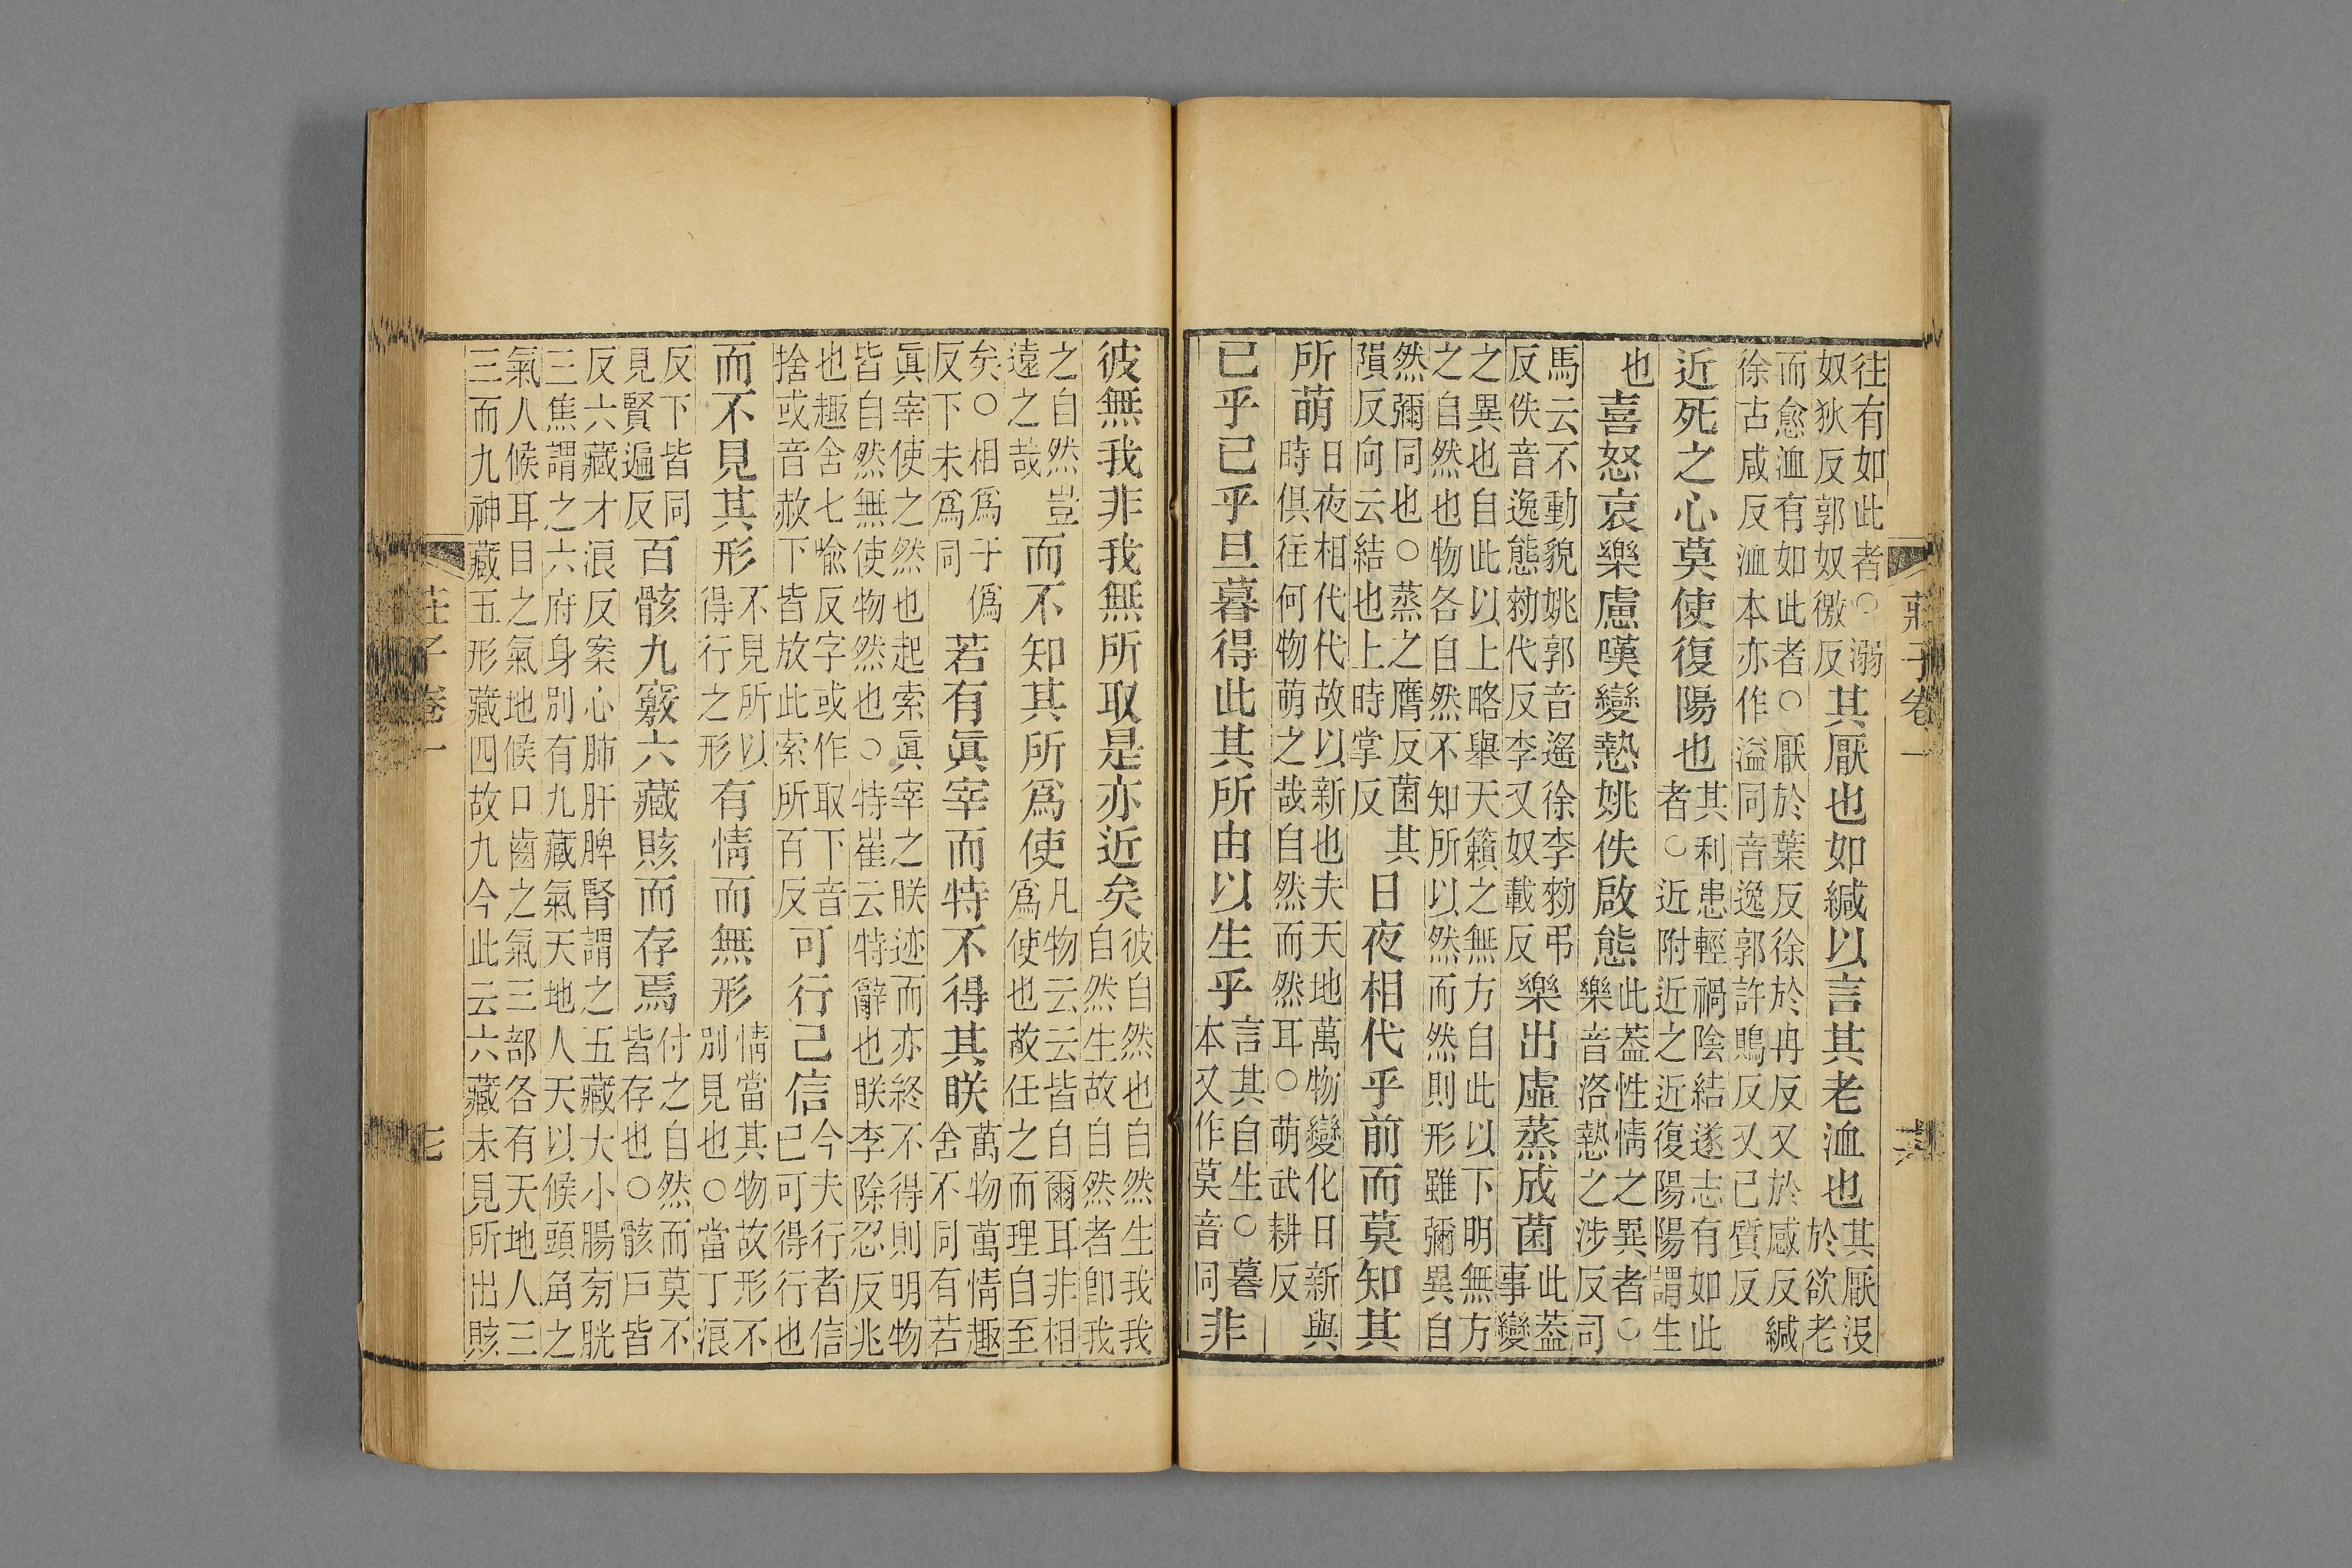 莊子卷一
往有如此者○溺
奴狄反郭奴徼反
其厭也如緘以言其老洫也
其厭沒
於欲老
而愈洫有如此者○厭於葉反徐於冉反又於感反緘
徐古咸反洫本亦作溢同音逸郭許鵙反又已質反
近死之心莫使復陽也
其利患輕禍陰結遂志有如此
者○近附近之近復陽陽謂生
也
喜怒哀樂慮嘆變慹姚佚啟態
此葢性情之異者○
樂音洛慹之涉反司
馬云不動貌姚郭音遙徐李勑弔
反佚音逸態勑代反李又奴載反
樂出虛蒸成菌
此葢
事變
之異也自此以上略舉天籟之無方自此以下明無方
之自然也物各自然不知所以然而然則形雖彌異自
然彌同也○蒸之膺反菌其
隕反向云結也上時掌反
日夜相代乎前而莫知其
所萌
日夜相代代故以新也夫天地萬物變化日新與
時俱往何物萌之哉自然而然耳○萌武耕反
已乎已乎旦暮得此其所由以生乎
言其自生○暮
本又作莫音同
非
彼無我非我無所取是亦近矣
彼自然也自然生我我
自然生故自然者卽我
之自然豈
遠之哉
而不知其所爲使
凡物云云皆自爾耳非相
爲使也故任之而理自至
矣○相爲于僞
反下未爲同
若有眞宰而特不得其眹
萬物萬情趣
舍不同有若
眞宰使之然也起索眞宰之眹迹而亦終不得則明物
皆自然無使物然也○特崔云特辭也眹李除忍反兆
也趣舍七喻反字或作取下音
捨或音赦下皆放此索所百反
可行己信
今夫行者信
已可得行也
而不見其形
不見所以
得行之形
有情而無形
情當其物故形不
別見也○當丁浪
反下皆同
見賢遍反
百骸九竅六藏賅而存焉
付之自然而莫不
皆存也○骸戶皆
反六藏才浪反案心肺肝脾腎謂之五藏大小腸旁胱
三焦謂之六府身別有九藏氣天地人天以候頭角之
氣人候耳目之氣地候口齒之氣三部各有天地人三
三而九神藏五形藏四故九今此云六藏未見所出賅
莊子卷一